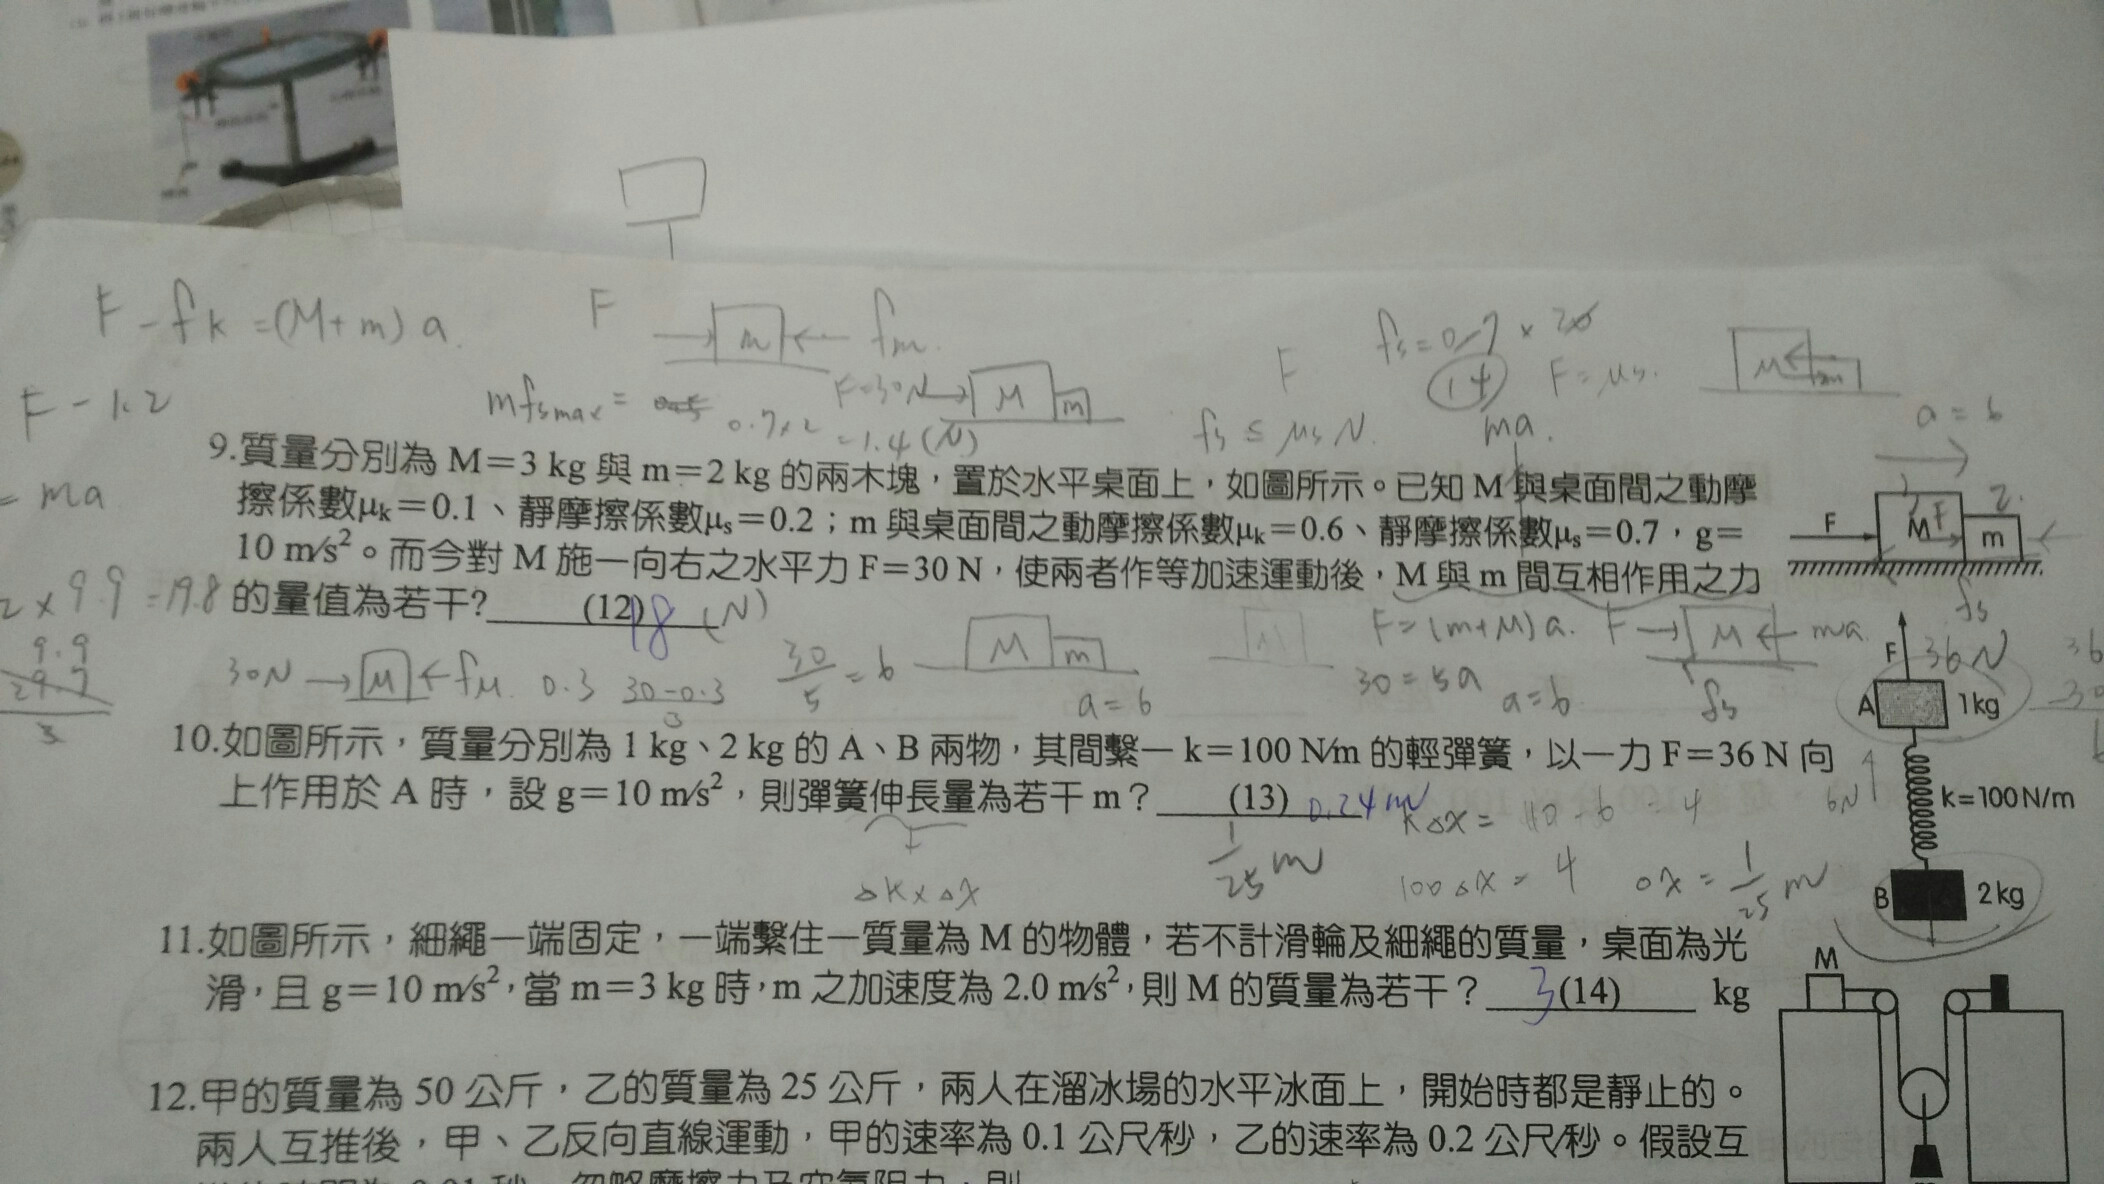 F - fk = (M+m) a
F
m
fm.
fs = 0.7 × 20
14
F = μs.
M
m
F - 1.2
mfsmax =
0.7×2
= 1.4 (N)
F=30N
M
m
F
fs ≤ μs N.
ma.
a = 6
9.質量分別為 M=3 kg 與 m=2 kg 的兩木塊，置於水平桌面上，如圖所示。已知 M 與桌面間之動摩
擦係數μk=0.1、靜摩擦係數μs=0.2；m 與桌面間之動摩擦係數μk=0.6、靜摩擦係數μs=0.7，g=
10 m/s²。而今對 M 施一向右之水平力 F=30 N，使兩者作等加速運動後，M 與 m 間互相作用之力
的量值為若干?  (12) 18 (N)
= ma
2 × 9.9 = 19.8
9.9
29.7
3
F
M
F
2.
m
fs
30N
M
fM
0.3
30-0.3
3
30
5
= 6
M
m
a = 6
F = (m+M) a.
30 = 5a
a = 6
F
M
ma
fs
10.如圖所示，質量分別為 1 kg、2 kg 的 A、B 兩物，其間繫一 k=100 N/m 的輕彈簧，以一力 F=36 N 向
上作用於 A 時，設 g=10 m/s²，則彈簧伸長量為若干 m？  (13) 0.24 m
F
36N
A
1 kg
6N
k=100 N/m
B
2 kg
k△x = 10 - 6 = 4
1
25
m
△k×△x
100△x = 4
△x = 1/25 m
11.如圖所示，細繩一端固定，一端繫住一質量為 M 的物體，若不計滑輪及細繩的質量，桌面為光
滑，且 g=10 m/s²，當 m=3 kg 時，m 之加速度為 2.0 m/s²，則 M 的質量為若干？ 3 (14) kg
M
12.甲的質量為 50 公斤，乙的質量為 25 公斤，兩人在溜冰場的水平冰面上，開始時都是靜止的。
兩人互推後，甲、乙反向直線運動，甲的速率為 0.1 公尺/秒，乙的速率為 0.2 公尺/秒。假設互